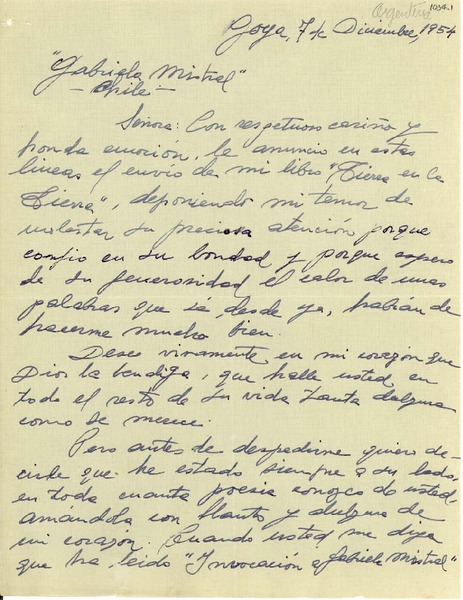 Argentina
1034.1
Goya, 7 de Diciembre, 1954
"Gabriela Mistral"
- Chile -
Señora: Con respetuoso cariño y
honda emoción, le anuncio en estas
lineas el envío de mi libro "Tierra en la
Tierra", deponiendo mi temor de
molestar su preciosa atención porque
confio en su bondad y porque espero
de su generosidad el valor de unas
palabras que sé, desde ya, habrían de
hacerme mucho bien.
Deseo vivamente en mi corazón que
Dios la bendiga, que halle usted en
todo el resto de su vida tanta dulzura
como se merece.
Pero antes de despedirme quiero de-
cirle que he estado siempre a su lado,
en toda cuanta poesia conozco de usted,
amándola con llanto y dulzura de
mi corazón. Cuando usted me diga
que ha leído "Invocación a Gabriela Mistral"